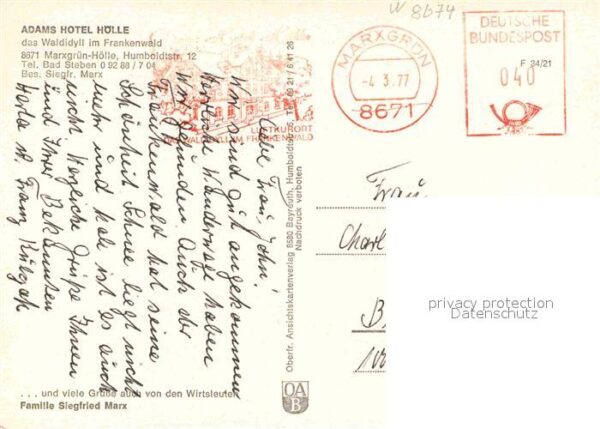 W 8674
ADAMS HOTEL HÖLLE
das Waldidyll im Frankenwald
8671 Marxgrün-Hölle, Humboldtstr. 12
Tel. Bad Steben 0 92 88 / 7 04
Bes. Siegfr. Marx
LUFTKURORT
DAS WALDIDYLL IM FRANKENWALD
MARXGRÜN
-4.3.77
8671
DEUTSCHE
BUNDESPOST
F 34/21
040
Liebe Frau John!
Wir sind gut angekommen
herrliche Wanderwege haben
wir gefunden. Auch der
Frankenwald hat seine
Schönheit. Schnee liegt nicht
mehr und kal ist es auch
nicht herzliche Grüße Ihnen
und Ihren Bekannten
Herta u. Franz
. . . und viele Grüße auch von den Wirtsleuten
Familie Siegfried Marx
Oberfr. Ansichtskartenverlag 8580 Bayreuth, Humboldtstr. Tel. 09 21 / 6 41 26
Nachdruck verboten
OA
B
Frau
Charl
B
privacy protection
Datenschutz